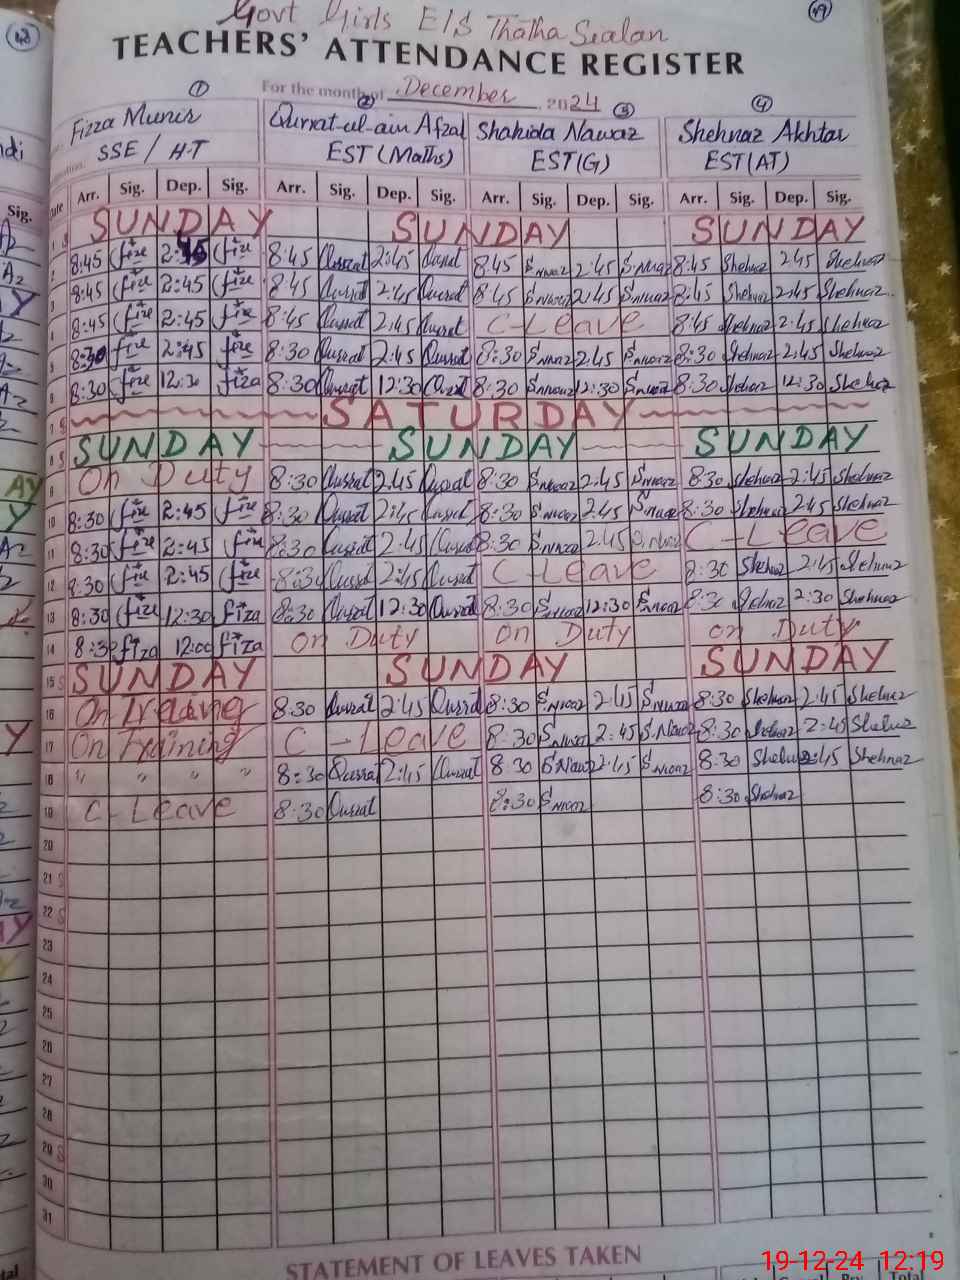 Govt Girls E/S Thatha Sialan
19
TEACHERS' ATTENDANCE REGISTER
For the month of December 2024
1 2 3 4
Fizza Munir Qurrat-ul-ain Afzal Shahida Nawaz Shehnaz Akhtar
SSE / H-T EST (Maths) EST(G) EST(AT)
Arr. Sig. Dep. Sig. Arr. Sig. Dep. Sig. Arr. Sig. Dep. Sig. Arr. Sig. Dep. Sig.
1 S SUNDAY SUNDAY SUNDAY
2 8:45 2:45 8:45 Qurrat 2:45 Qurrat 8:45 S.nwaz 2:45 S.nwaz 8:45 Shehnaz 2:45 Shehnaz
3 8:45 2:45 8:45 Qurrat 2:45 Qurrat 8:45 S.nwaz 2:45 S.nwaz 8:45 Shehnaz 2:45 Shehnaz
4 8:45 2:45 8:45 Qurrat 2:45 Qurrat C-Leave 8:45 Shehnaz 2:45 Shehnaz
5 8:30 2:45 8:30 Qurrat 2:45 Qurrat 8:30 S.nwaz 2:45 S.nwaz 8:30 Shehnaz 2:45 Shehnaz
6 8:30 12:30 fiza 8:30 Qurrat 12:30 Qurrat 8:30 S.nwaz 12:30 S.nwaz 8:30 Shehnaz 12:30 Shehnaz
7 S SATURDAY
8 S SUNDAY SUNDAY SUNDAY
9 On Duty 8:30 Qurrat 2:45 Qurrat 8:30 S.nwaz 2:45 S.nwaz 8:30 Shehnaz 2:45 Shehnaz
10 8:30 2:45 8:30 Qurrat 2:45 Qurrat 8:30 S.nwaz 2:45 S.nwaz 8:30 Shehnaz 2:45 Shehnaz
11 8:30 2:45 8:30 Qurrat 2:45 Qurrat 8:30 S.nwaz 2:45 S.nwaz C-Leave
12 8:30 2:45 8:30 Qurrat 2:45 Qurrat C-Leave 8:30 Shehnaz 2:45 Shehnaz
13 8:30 12:30 fiza 8:30 Qurrat 12:30 Qurrat 8:30 S.nwaz 12:30 S.nwaz 8:30 Shehnaz 2:30 Shehnaz
14 8:30 fiza 12:00 fiza On Duty On Duty On Duty
15 S SUNDAY SUNDAY SUNDAY
16 On 8:30 Qurrat 2:45 Qurrat 8:30 S.nwaz 2:45 S.nwaz 8:30 Shehnaz 2:45 Shehnaz
17 On Training C-Leave 8:30 S.nwaz 2:45 S.Nawaz 8:30 Shehnaz 2:45 Shehnaz
18 " " " " 8:30 Qurrat 2:45 Qurrat 8:30 S.Nawaz 2:45 S.nwaz 8:30 Shehnaz 2:45 Shehnaz
19 C-Leave 8:30 Qurrat 8:30 S.nwaz 8:30 Shehnaz
20
21 S
22 S
23
24
25
26
27
28
29 S
30
31
STATEMENT OF LEAVES TAKEN
19-12-24 12:19